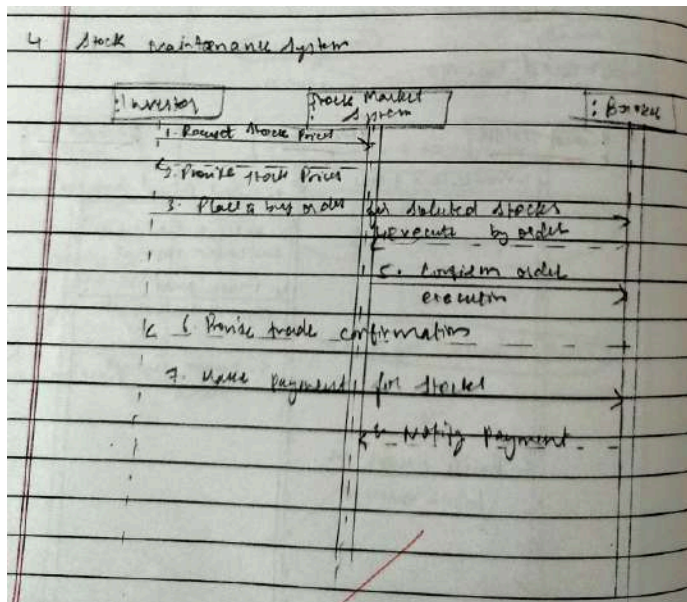 4 Stock Maintenance System
:Investor
Stock Market
System
: Broker
1. Request Stock Prices
2. Provide Stock Prices
3. Place a buy order for selected stocks
execute by order
5. Confirm order
execution
6. Provide trade confirmation
7. Make payment for stocks
8. Notify Payment